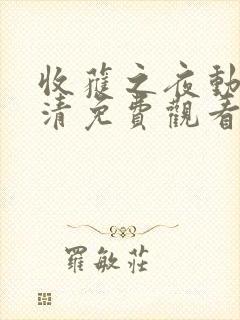 收穫之夜動
清免費觀看
羅敏莊